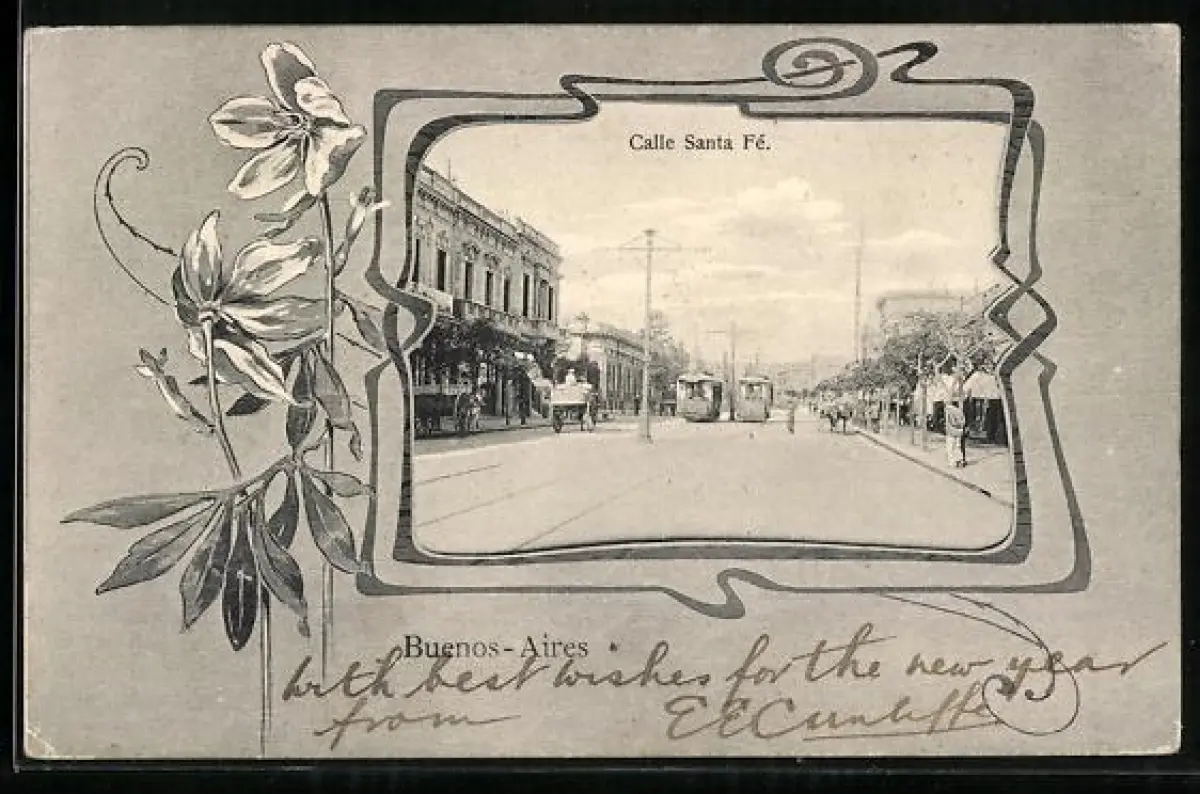 Calle Santa Fé.
Buenos-Aires
with best wishes for the new year
from E E Cunliffe